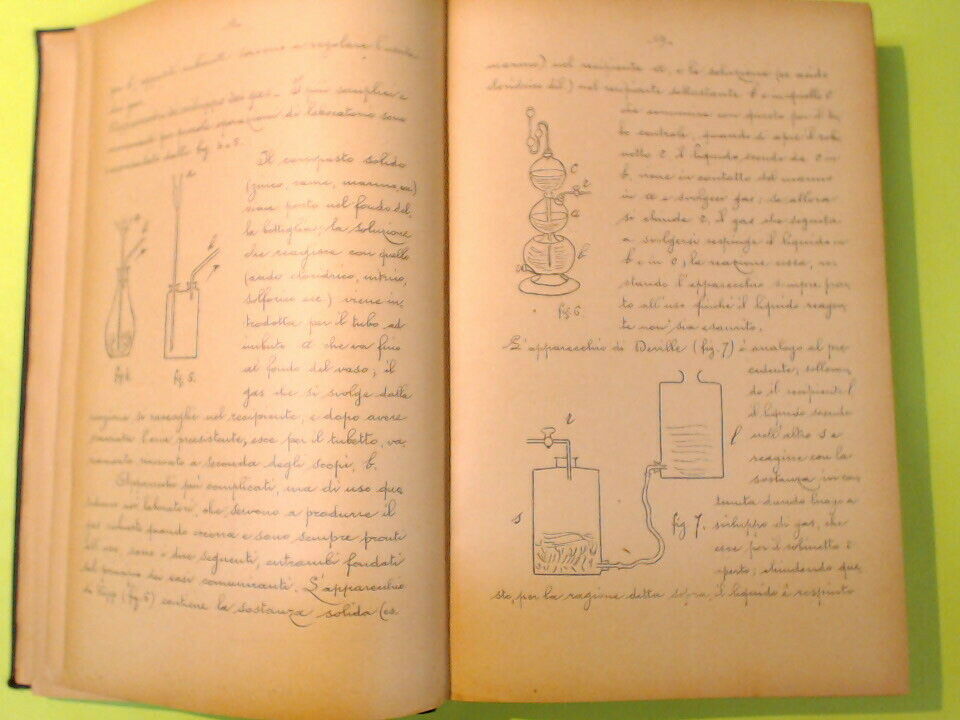 per b, servono a regolare l'uscita
del gas.
sviluppo dei gas. I più semplici e
per piccole operazioni di laboratorio sono
dalle fig. 4 e 5.
Il composto solido
(zinco, rame, marmo, ecc)
vien posto nel fondo del
la bottiglia; la soluzione
che reagisce con quello
(acido cloridrico, nitrico,
solforico ecc.) viene in
trodotta per il tubo ad
imbuto a che va fino
al fondo del vaso; il
gas che si svolge dalla
reazione si raccoglie nel recipiente, e dopo avere
cacciata l'aria preesistente, esce per il tubetto, va
riamente curvato a seconda degli scopi, b.
Apparecchi più complicati, ma di uso quo
tidiano nei laboratori, che servono a produrre il
gas soltanto quando occorra e sono sempre pronti
all'uso, sono i due seguenti, entrambi fondati
sul principio dei vasi comunicanti. L'apparecchio
di Kipp (fig. 6) contiene la sostanza solida (es.
a
b
b
fig. 4.
fig. 5.
marmo) nel recipiente a, e la soluzione (es acido
cloridrico dil) nel recipiente sottostante b e in quello c
che comunica con questo per il tu
bo centrale; quando si apre il rubi
netto r, il liquido scende da c in
b, viene in contatto del marmo
in a e svolgesi gas; se allora
si chiude r, il gas che seguita
a svolgersi respinge il liquido in
b e in c, la reazione cessa, re
stando l'apparecchio sempre pron
to all'uso finchè il liquido reagen
te non sia esaurito.
c
r
a
b
fig. 6.
L'apparecchio di Deville (fig. 7) è analogo al pre
cedente; sollevan
do il recipiente l
il liquido scende
nell'altro s e
reagisce con la
sostanza in con
tenuta dando luogo a
sviluppo di gas, che
esce per il rubinetto r
aperto; chiudendo que
sto, per la ragione detta sopra, il liquido è respinto
r
l
s
fig 7.